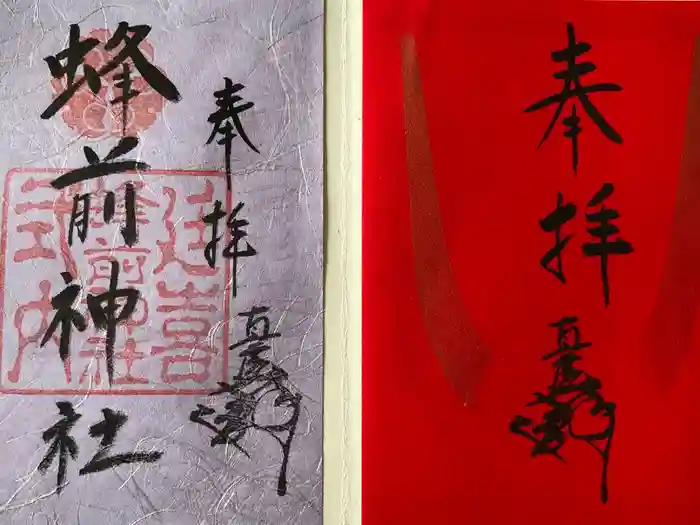 奉拝
直虎
蜂前神社
延喜
蜂前神社
式内
奉拝
直虎